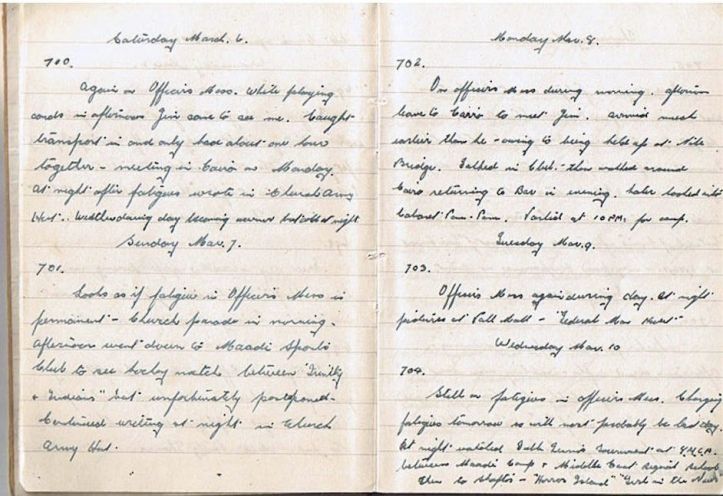 Saturday March. 6.
700.
Again on Officers Mess. While playing
cards in afternoon Jim came to see me. Caught
transport in and only had about one hour
together - meeting in Cairo on Monday.
At night after fatigues wrote in Church Army
Hut. Weather during day becoming warmer but cold at night
Sunday Mar. 7.
701.
Looks as if fatigue in Officers Mess is
permanent - Church parade in morning.
Afternoon went down to Maadi Sports
Club to see hockey match between "Trinity
& Indians" but unfortunately postponed -
Continued writing at night in Church
Army Hut.
Monday Mar. 8.
702.
On officers mess during morning. afternoon
leave to Cairo to meet Jim. arrived much
earlier than he - owing to being held up at Nile
Bridge. Talked in Club. - then walked around
Cairo returning to Bar in evening. Later looked into
Cabaret Parted at 10 P.M. for camp.
Tuesday Mar. 9.
703.
Officers Mess again during day. At night
pictures at Pall Mall - "Federal Man Hunt"
Wednesday Mar. 10
704.
Still on fatigues in officers Mess. Changing
fatigues tomorrow so will most probably be last day.
At night watched Table Tennis Tournament at Y.M.C.A.
between Maadi Camp & Middle East signal school
then to Shafto's - "Horror Island" "Girl in the News"